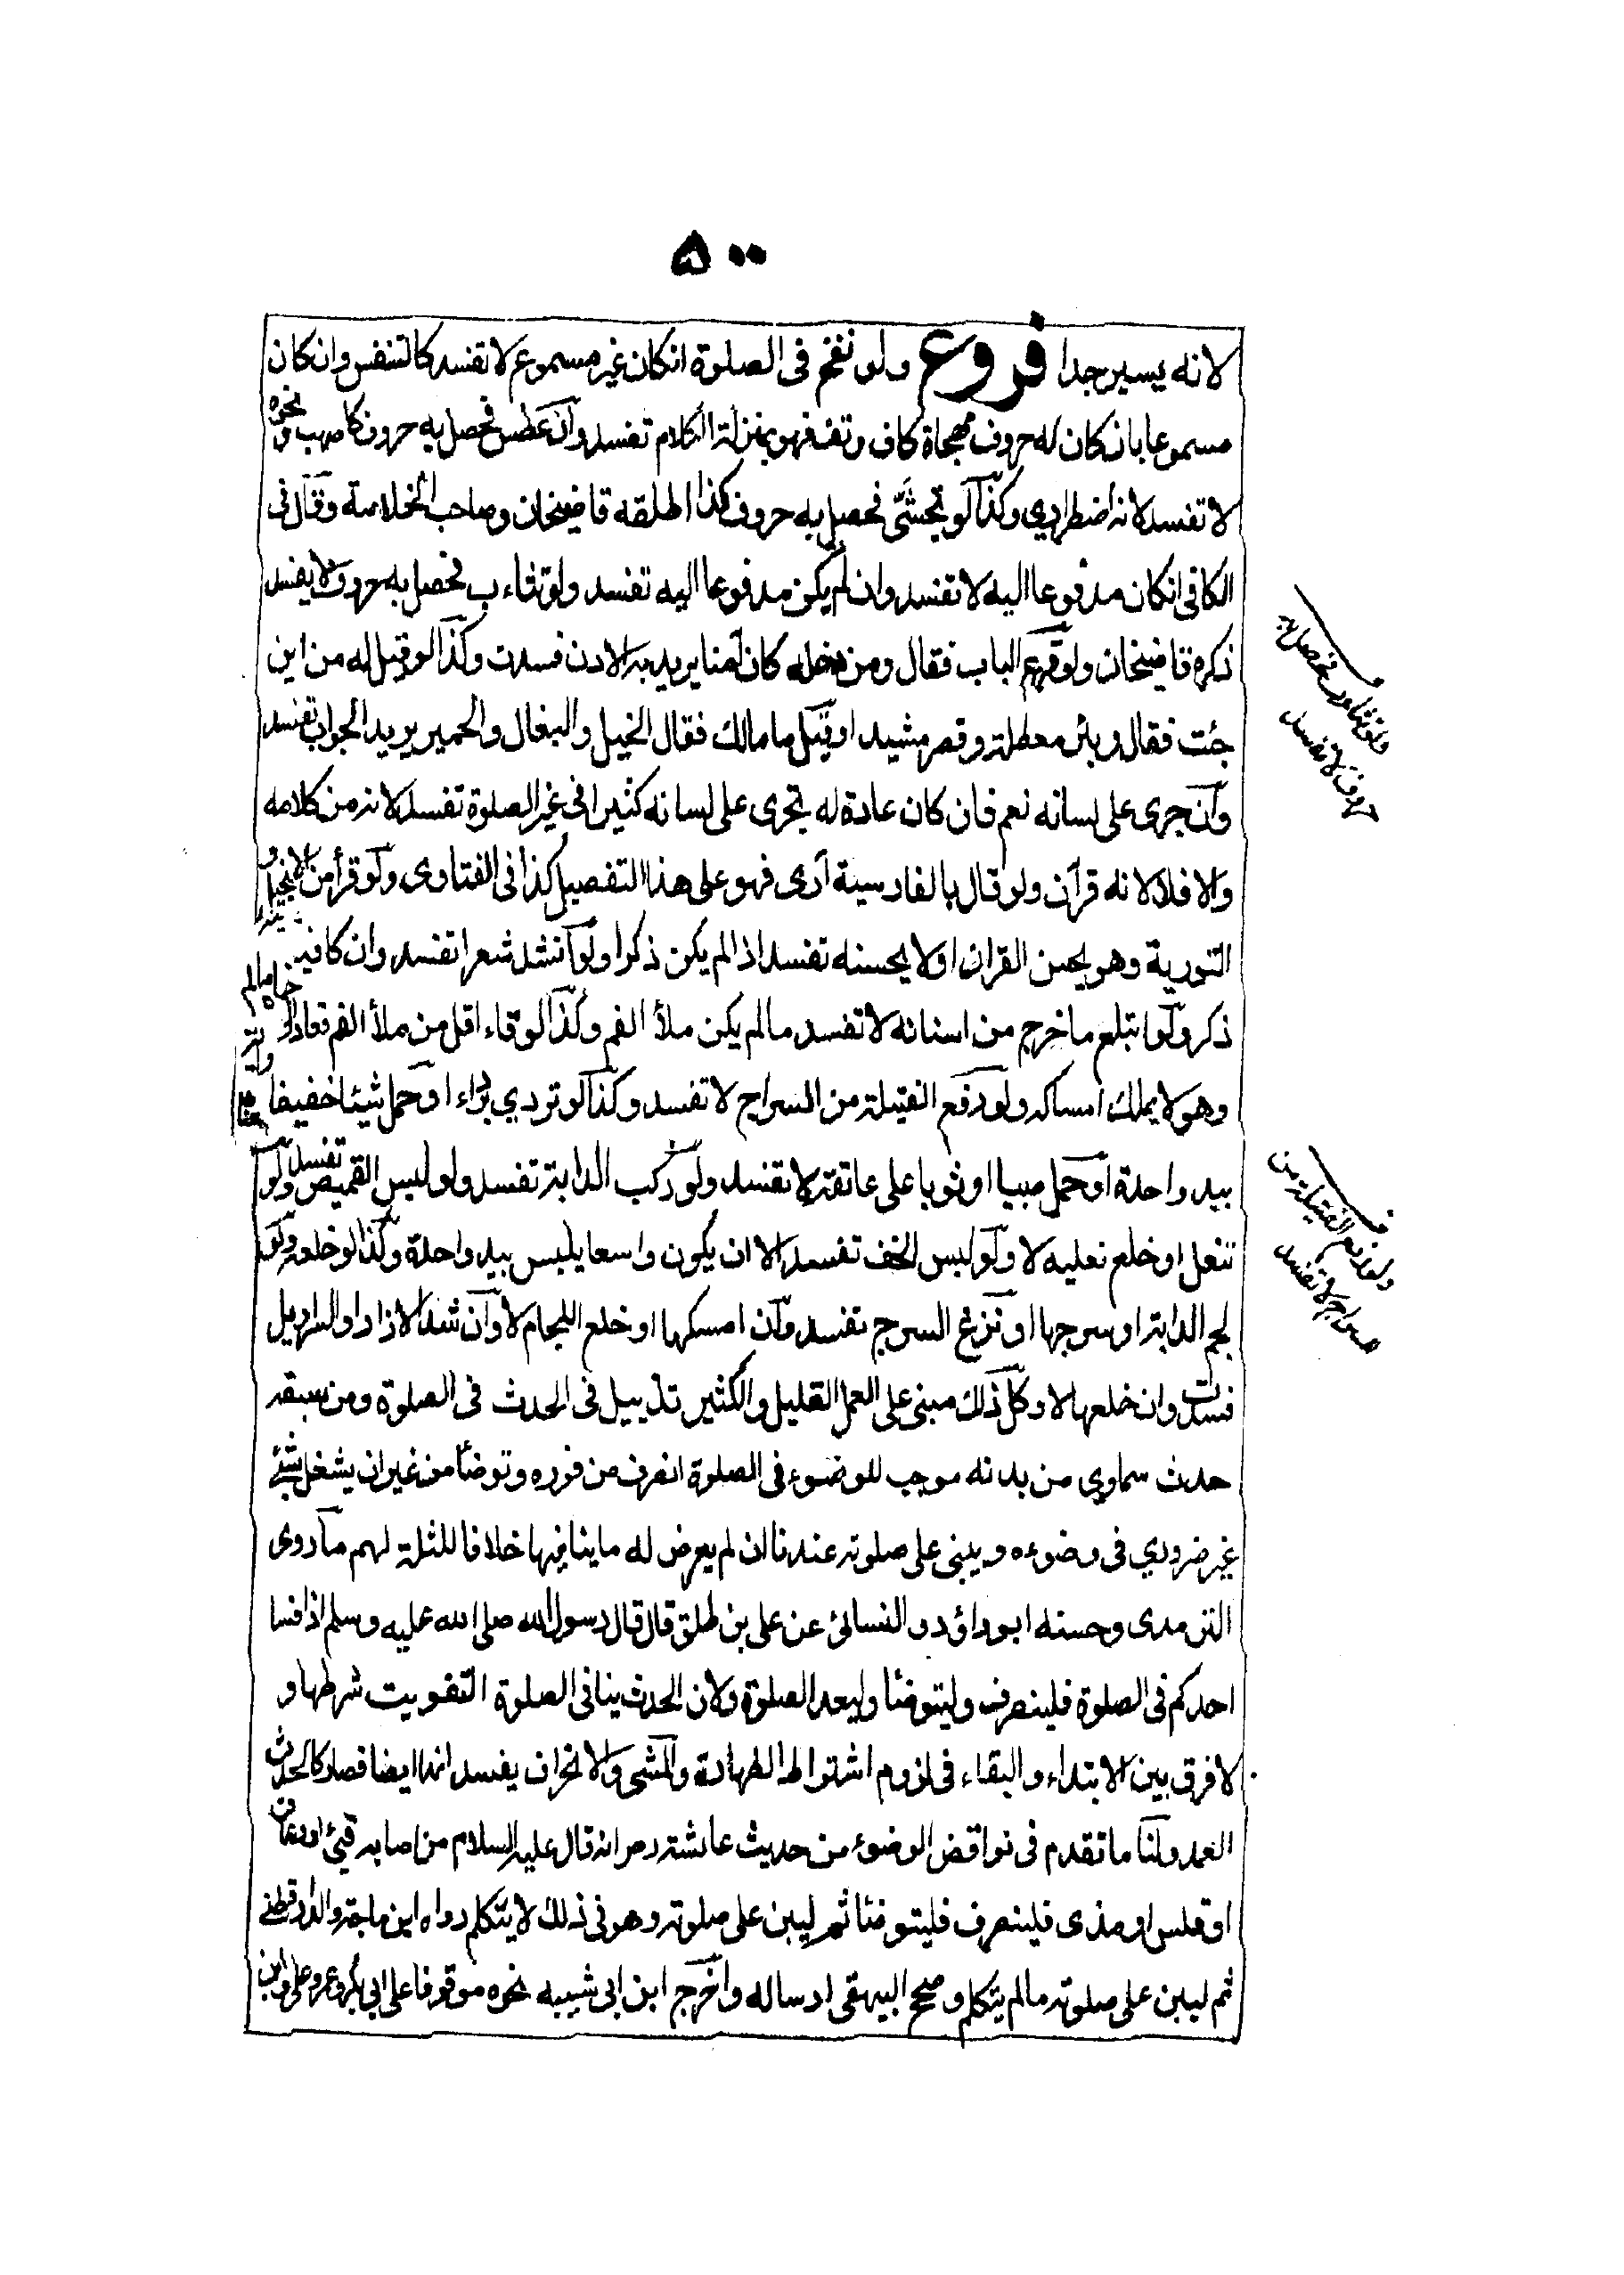 ۵۰۰
لانه يسير جدا فروع ولو نفخ فى الصلوة انكان غير مسموع لا تفسد كالتنفس وانكان
مسموعا بان كان له حروف مهجاة كاف وتف فهو بمنزلة الكلام تفسد وان عطس فحصل به حروف كاصهب ونحوه
لا تفسد لانه اضطراري وكذا لو تجشّى فحصل به حروف كذا اطلقه قاضيخان وصاحب الخلاصة وقال فى
الكافى انكان مدفوعا اليه لا تفسد وان لم يكن مدفوعا اليه تفسد ولو تثاءب فحصل به حروف لا يفسد
ذكره قاضيخان ولو قرع الباب فقال ومن دخله كان آمنا يريد به الاذن فسدت وكذا لو قيل له من اين
جئت فقال وبئر معطلة وقصر مشيد او قيل ما مالك فقال الخيل والبغال والحمير يريد الجواب تفسد
وان جرى على لسانه نعم فان كان عادة له يجرى على لسانه كثيرا فى غير الصلوة تفسد لانه من كلامه
والا فلا لانه قرآن ولو قال بالفارسية آرى فهو على هذا التفصيل كذا فى الفتاوى ولو قرأ من الانجيل و
التورية وهو يحسن القران او لا يحسنه تفسد اذا لم يكن ذكرا ولو انشد شعرا تفسد وان كا فيه
ذكر ولو ابتلع ما خرج من اسنانه لا تفسد ما لم يكن ملأ الفم وكذا لو قاء اقل من ملأ الفم فعاد الى
وهو لا يملك امساكه ولو رفع الفتيلة من السراج لا تفسد وكذا لو تردي برداء او حمل شيئا خفيفا
بيد واحدة او حمل صبيا او ثوبا على عاتقه لا تفسد ولو ركب الدابة تفسد ولو لبس القميص تفسد ولو
تنعل او خلع نعليه لا ولو لبس الخف تفسد الا ان يكون واسعا يلبس بيد واحدة وكذا لو خلعه ولو
لجم الدابة او سرجها او نزع السرج تفسد وان امسكها او خلع اللجام لا وان شد الازار او السراويل
فسدت وان خلعها لا وكل ذلك مبنى على العمل القليل والكثير تذييل فى الحدث فى الصلوة ومن سبقه
حدث سماوي من بدنه موجب للوضوء فى الصلوة انصرف من فوره وتوضأ من غير ان يشغل بشئ
غير ضروري فى وضوءه ويبنى على صلوته عندنا ان لم يعرض له ما ينافيها خلافا للثلثة لهم ما روى
الترمذى وحسنه ابو داؤد والنسائى عن على بن طلق قال قال رسول الله صلى الله عليه وسلم اذا فسا
احدكم فى الصلوة فلينصرف وليتوضأ وليعد الصلوة ولان الحدث ينافى الصلوة التفويت شرطها و
لا فرق بين الابتداء والبقاء فى لزوم اشتراط الطهارة والمشى والانحراف يفسد انها ايضا فصار كالحدث
العمد ولنا ما تقدم فى نواقض الوضوء من حديث عائشة رضر انه قال عليه السلام من اصابه قيئ او رعاف
او قلس او مذى فلينصرف فليتوضأ ثم ليبن على صلوته وهو فى ذلك لا يتكلم رواه ابن ماجة والدارقطنى
ثم ليبن على صلوته ما لم يتكلم وصحح البيهقى ارساله واخرج ابن ابى شيبه نحوه موقوفا على ابى بكر وعمر وعلى وابن
ولو تثاوب فحصل به
حروف لا تفسد
ولو رفع الفتيلة من
السراج لا تفسد